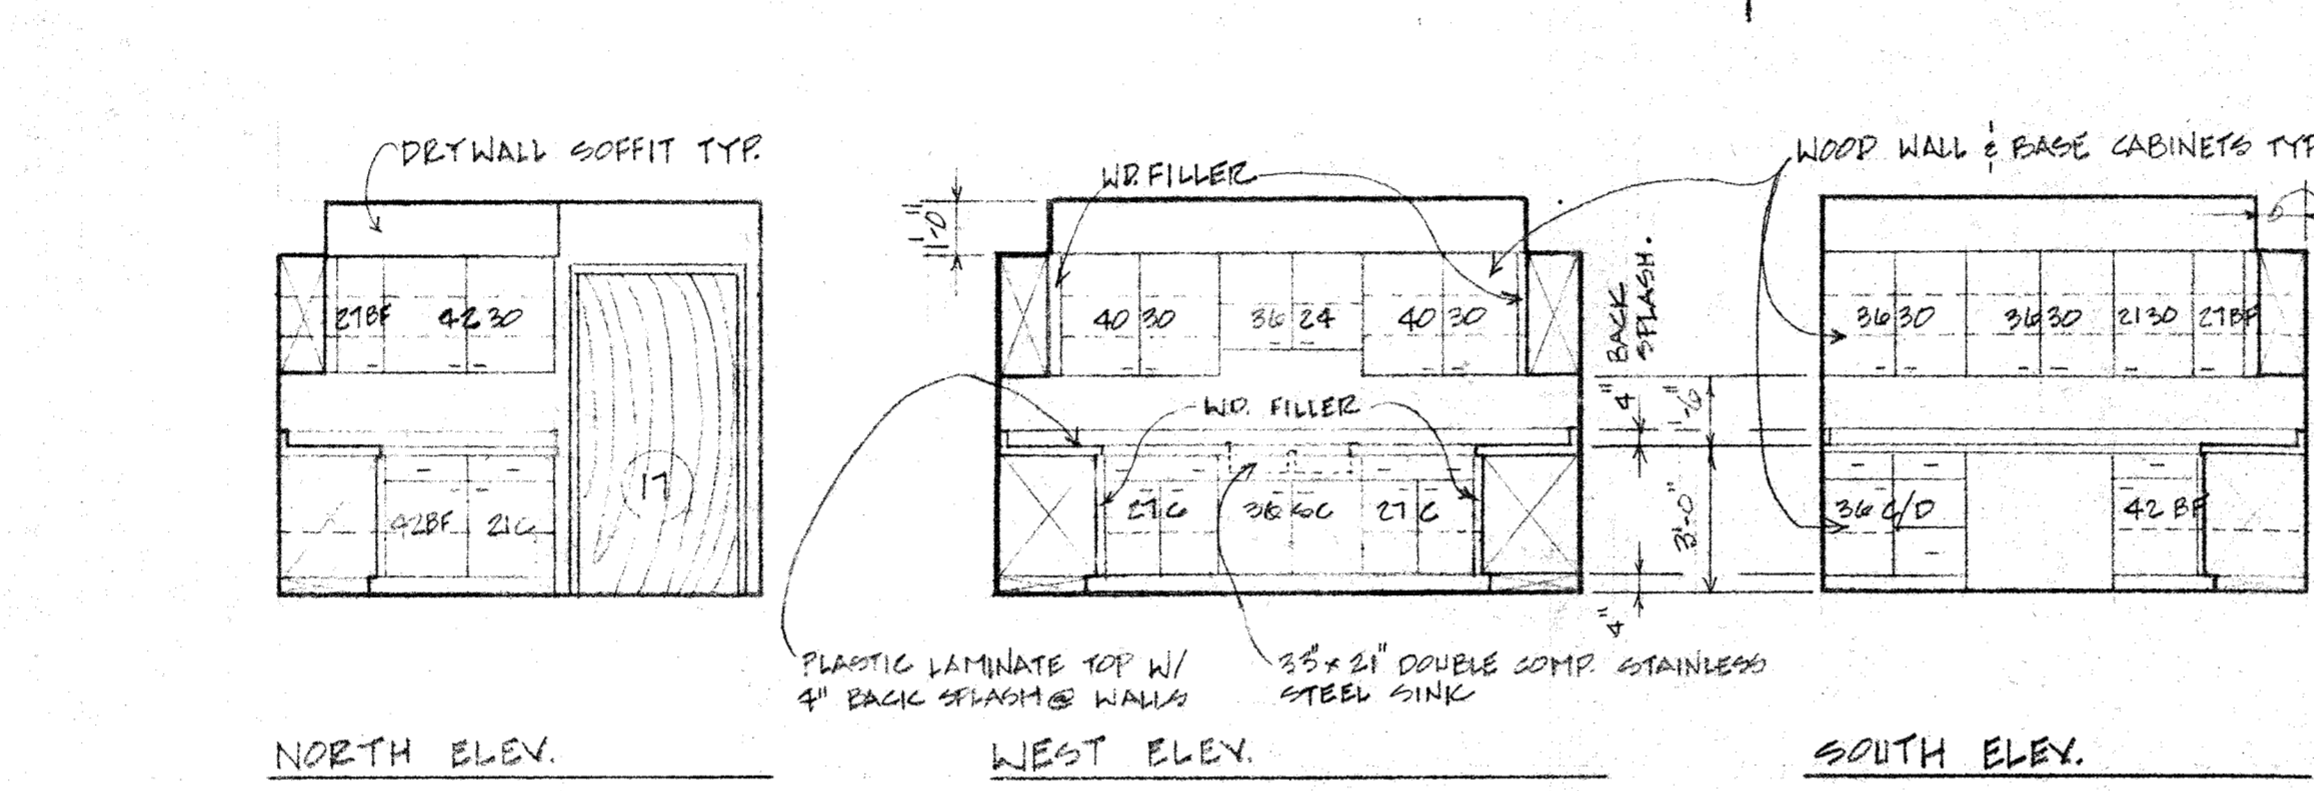 DRYWALL SOFFIT TYP.
27BF 42 30
17
42BF 21C
NORTH ELEV.
WD. FILLER
1'-0"
40 30 36 24 40 30
WD. FILLER
27 C 36 SC 27 C
PLASTIC LAMINATE TOP W/
4" BACK SPLASH @ WALLS
33" x 21" DOUBLE COMP. STAINLESS
STEEL SINK
WEST ELEV.
4" BACK
SPLASH.
1'-6"
3'-0"
4"
WOOD WALL & BASE CABINETS TYP
36 30 36 30 21 30 27BF
36 C/D 42 BF
SOUTH ELEV.